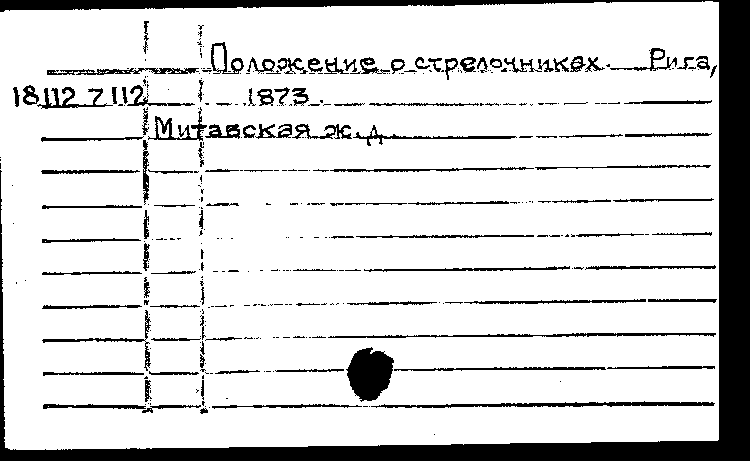 Положение о стрелочниках. Рига,
18112 7112 1873.
Митавская ж.д.